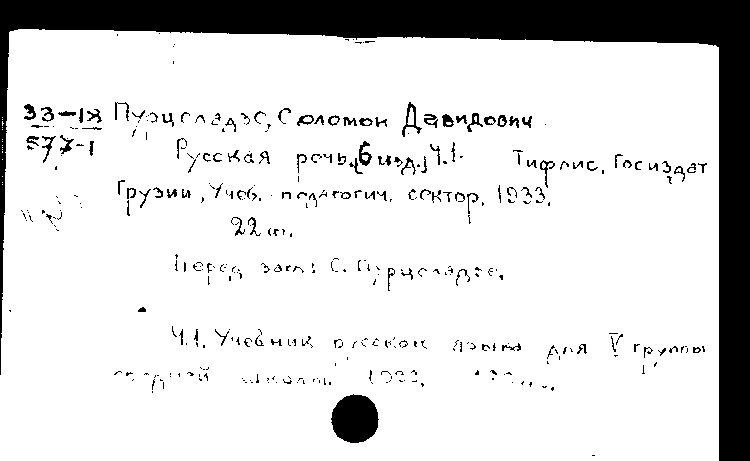 33-18 Пурцеладзе, Соломон Давидович
577-1
Русская речь. (6 изд.) Ч.1. Тифлис, Госиздат
Грузии, Учеб. педагогич. сектор, 1933.
22 см.
Перед загл: С. Пурцеладзе.
Ч.1. Учебник русском языка для V группы
средней школы. 1933.